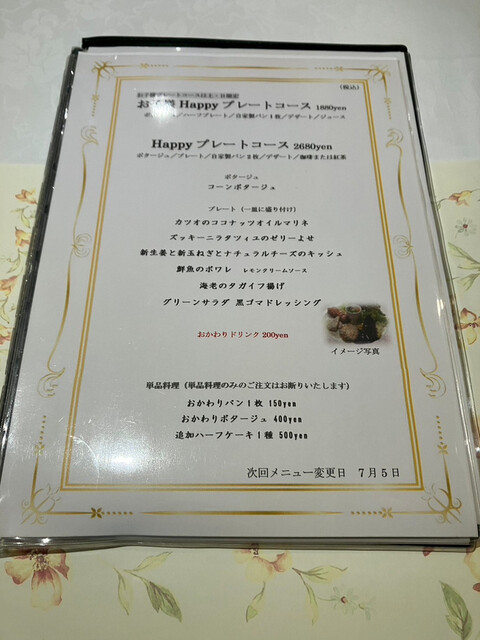 (税込)
お子様プレートコースは土・日限定
お子様 Happy プレートコース 1880yen
ポタージュ/ハーフプレート/自家製パン1枚/デザート/ジュース
Happy プレートコース 2680yen
ポタージュ/プレート/自家製パン2枚/デザート/珈琲または紅茶
ポタージュ
コーンポタージュ
プレート(一皿に盛り付け)
カツオのココナッツオイルマリネ
ズッキーニラタツィユのゼリーよせ
新生姜と新玉ねぎとナチュラルチーズのキッシュ
鮮魚のポワレ レモンクリームソース
海老のタガイフ揚げ
グリーンサラダ 黒ゴマドレッシング
おかわりドリンク 200yen
イメージ写真
単品料理(単品料理のみのご注文はお断りいたします)
おかわりパン1枚 150yen
おかわりポタージュ 400yen
追加ハーフケーキ1種 500yen
次回メニュー変更日 7月5日